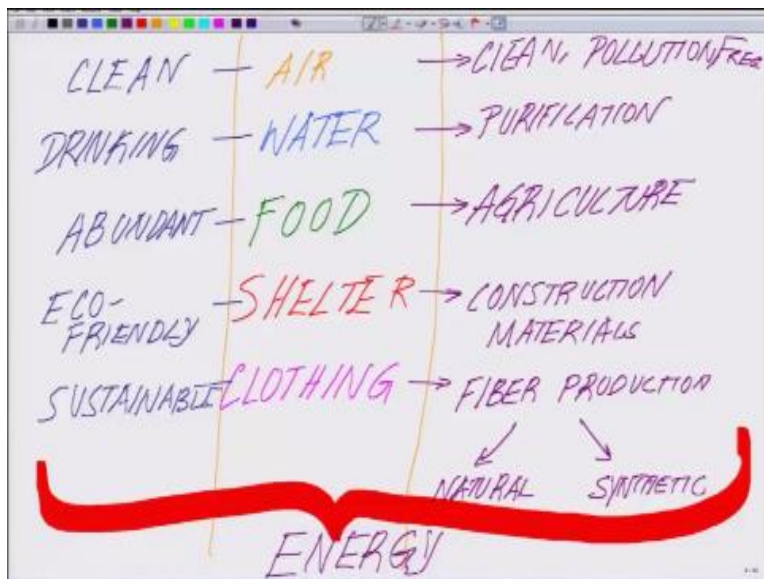 CLEAN — AIR → CLEAN, POLLUTION FREE
DRINKING — WATER → PURIFICATION
ABUNDANT — FOOD → AGRICULTURE
ECO-FRIENDLY — SHELTER → CONSTRUCTION MATERIALS
SUSTAINABLE CLOTHING → FIBER PRODUCTION
NATURAL SYNTHETIC
ENERGY